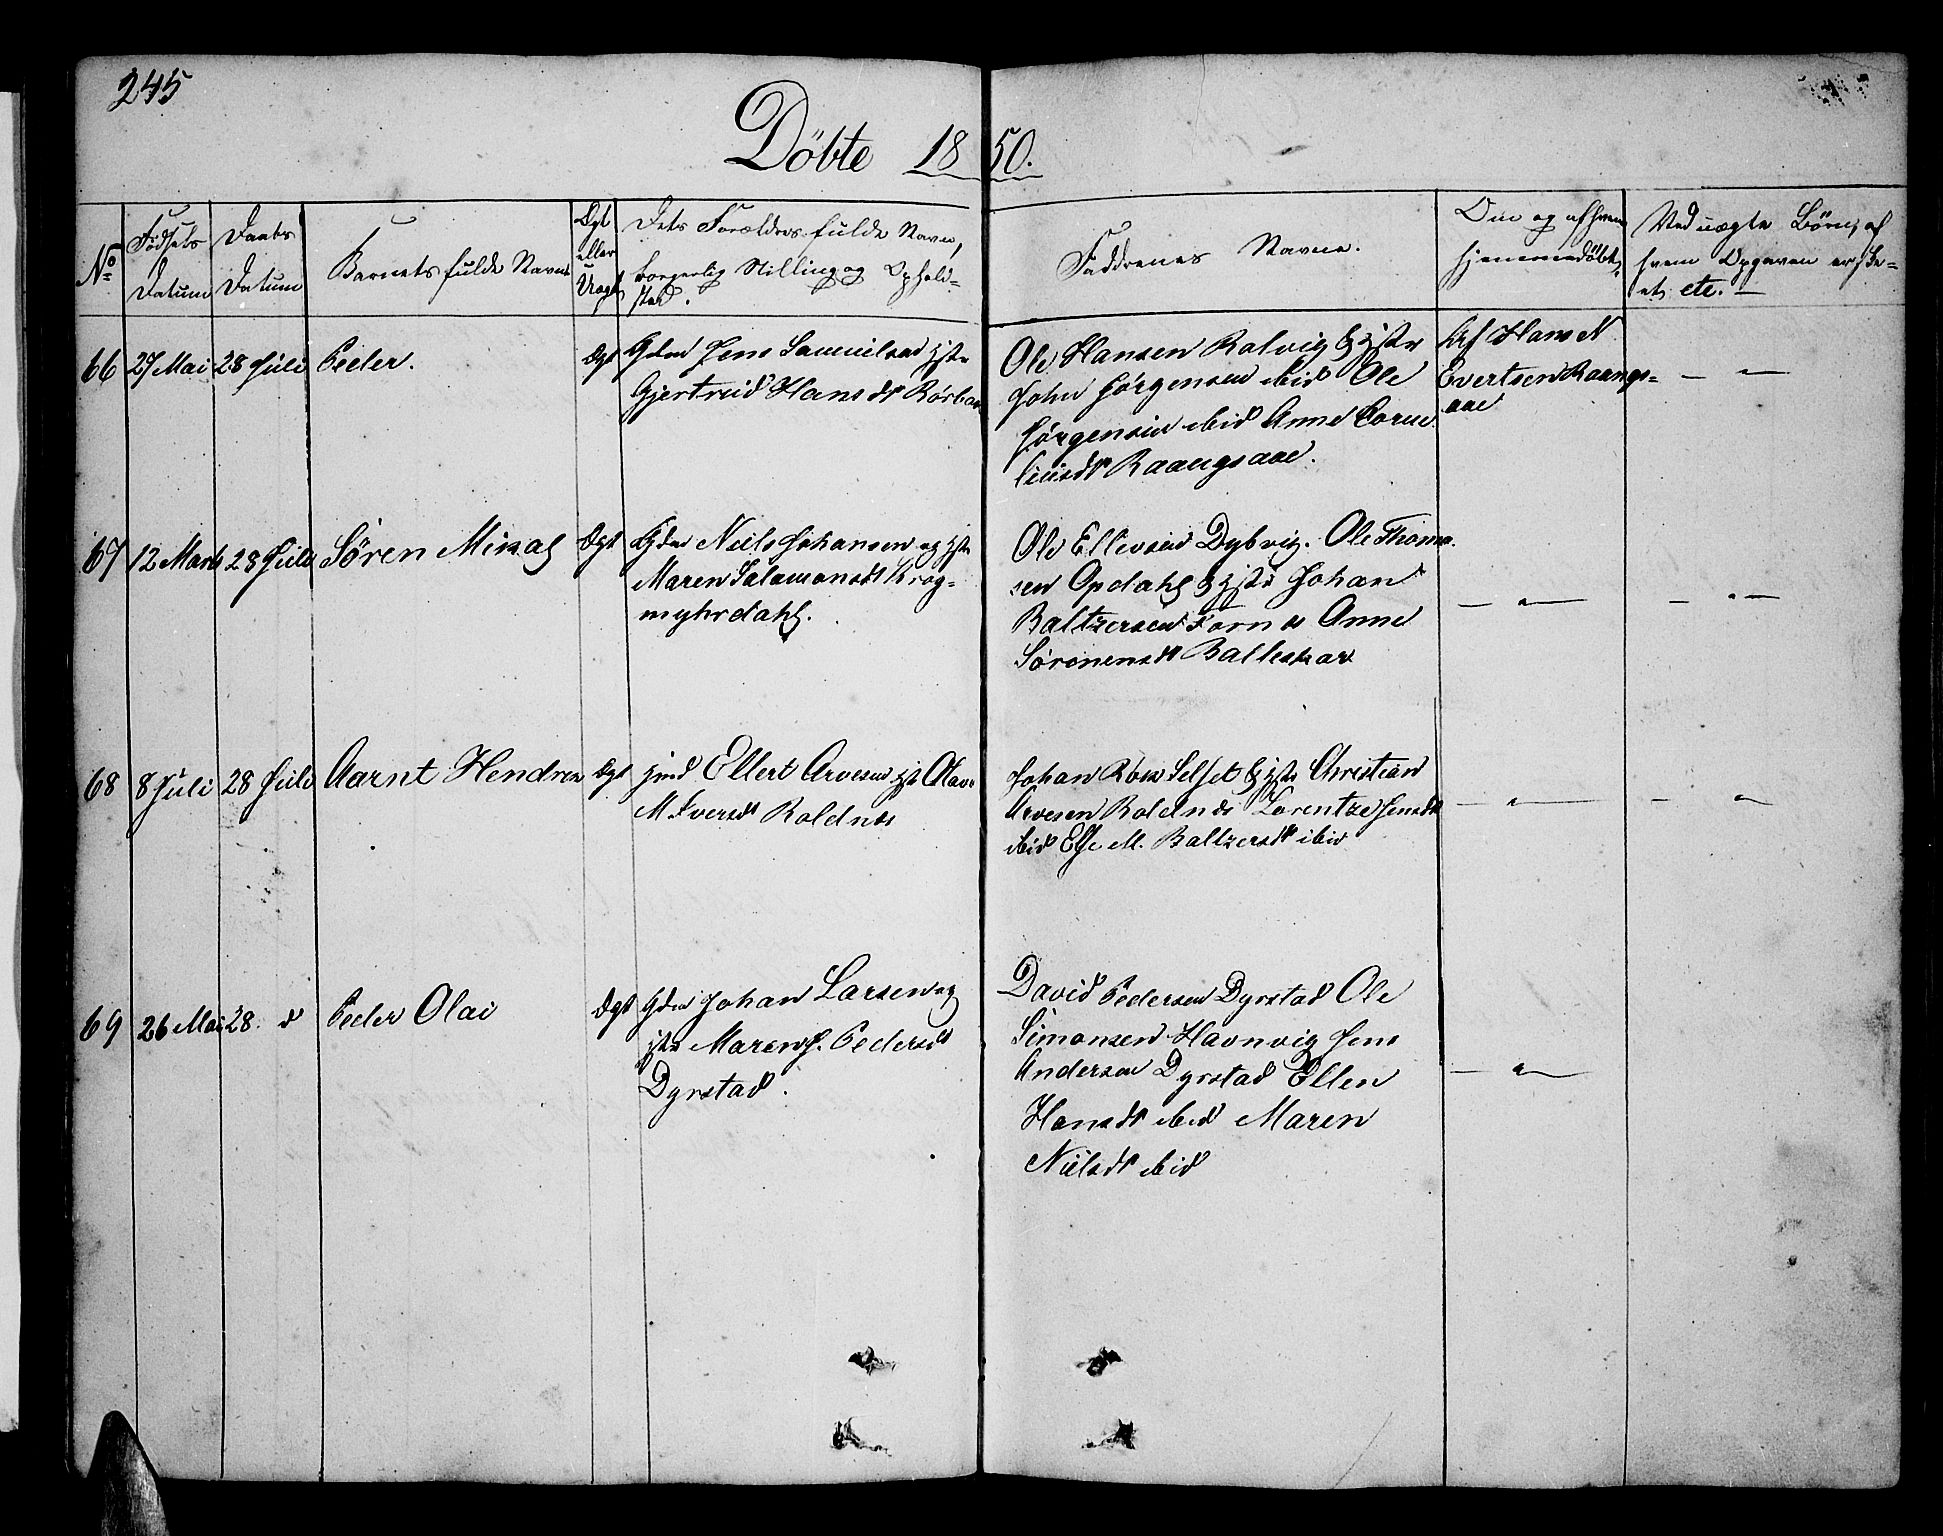 245
Döbte 1850.
No
Fødsels Datum
Daabs Datum
Barnets fulde Navn
Ægt eller Uægt
Dets Forældres fulde Navn,
borgerlig Stilling og Ophold-
sted.
Faddrenes Navne.
Om og af hvem
hjemmedøbt
Ved uægte Børn, af
hvem Opgaven er ske-
et etc. —
66 27 Mai 28 Juli Peder. Ægt
Gdm Jens Samuelsen Hstr
Gjertrud Hansdt Rørbak
Ole Hansen Rotvig Hstr
John Jørgensen ibid Ole
Jørgensen ibid Anne Corne
liusdt Raangsaae.
Af Hans N
Evertsen Raangs=
aae
— " —
67 12 Marts 28 Juli Søren Mikal Ægt
Gdm Niels Johansen og Hstr
Maren Salamonsdt Krog=
myhrdahl.
Ole Ellevsen Dybvig. Ole Thom
sen Opdahl Hstr Johan
Baltzersen Forn s Anne
Sørenensdt Balteskar
— " — — " —
68 8 Juli 28 Juli Aarnt Hendrek Ægt
Ind Ellert Arvesen Hst Olava
M Iversdt Roldnes
Johan Selset Hstr Christian
Arvesen Roldnes Lorentze Jensdt
ibid Else M. Baltzersdt ibid
— " — — " —
69 26 Mai 28 d Peder Olai Ægt
Gdm Johan Larsen og
Hstr Maren J. Pedersdt
Dyrstad.
David Pedersen Dyrstad Ole
Simonsen Havnvig Jens
Andersen Dyrstad Ellen
Hansdt ibid Maren
Nielsdt ibid
— " —